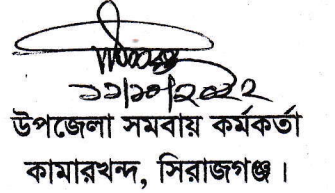 ১১/১০/২০২২
উপজেলা সমবায় কর্মকর্তা
কামারখন্দ, সিরাজগঞ্জ।